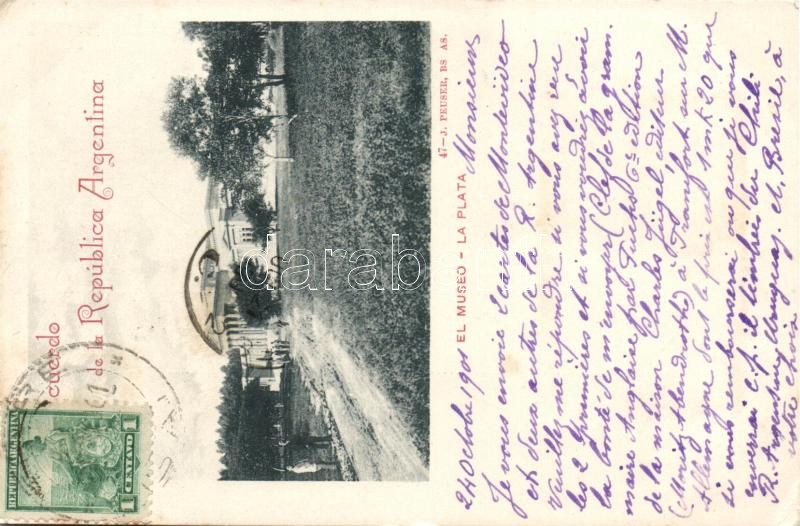 cuerdo
de la República Argentina
47–J. PEUSER, BS AS.
EL MUSEO - LA PLATA
darabanth
REPUBLICA ARGENTINA
1 CENTAVO 1
24 Octobre 1901 Monsieur
Je vous envoie 2 cartes de Montevideo
et deux autres de la R. Argentine
Veuillez me répondre si vous avez reçu
les 2 premières et si vous voudriez avoir
la bonté de m'envoyer (Clef de la gram.
maire Anglaise par Fuchs 6e edition
de la maison Charles Jügel éditeur
(Moritz Abendroth) à Francfort sur M.
Allemagne dont le prix est 1 mk 20 que
je vous rembourserai ou que je vous
enverrai c.p. il timbrés du Chili
R. Argentine, Uruguay et Bresil, à
votre choix